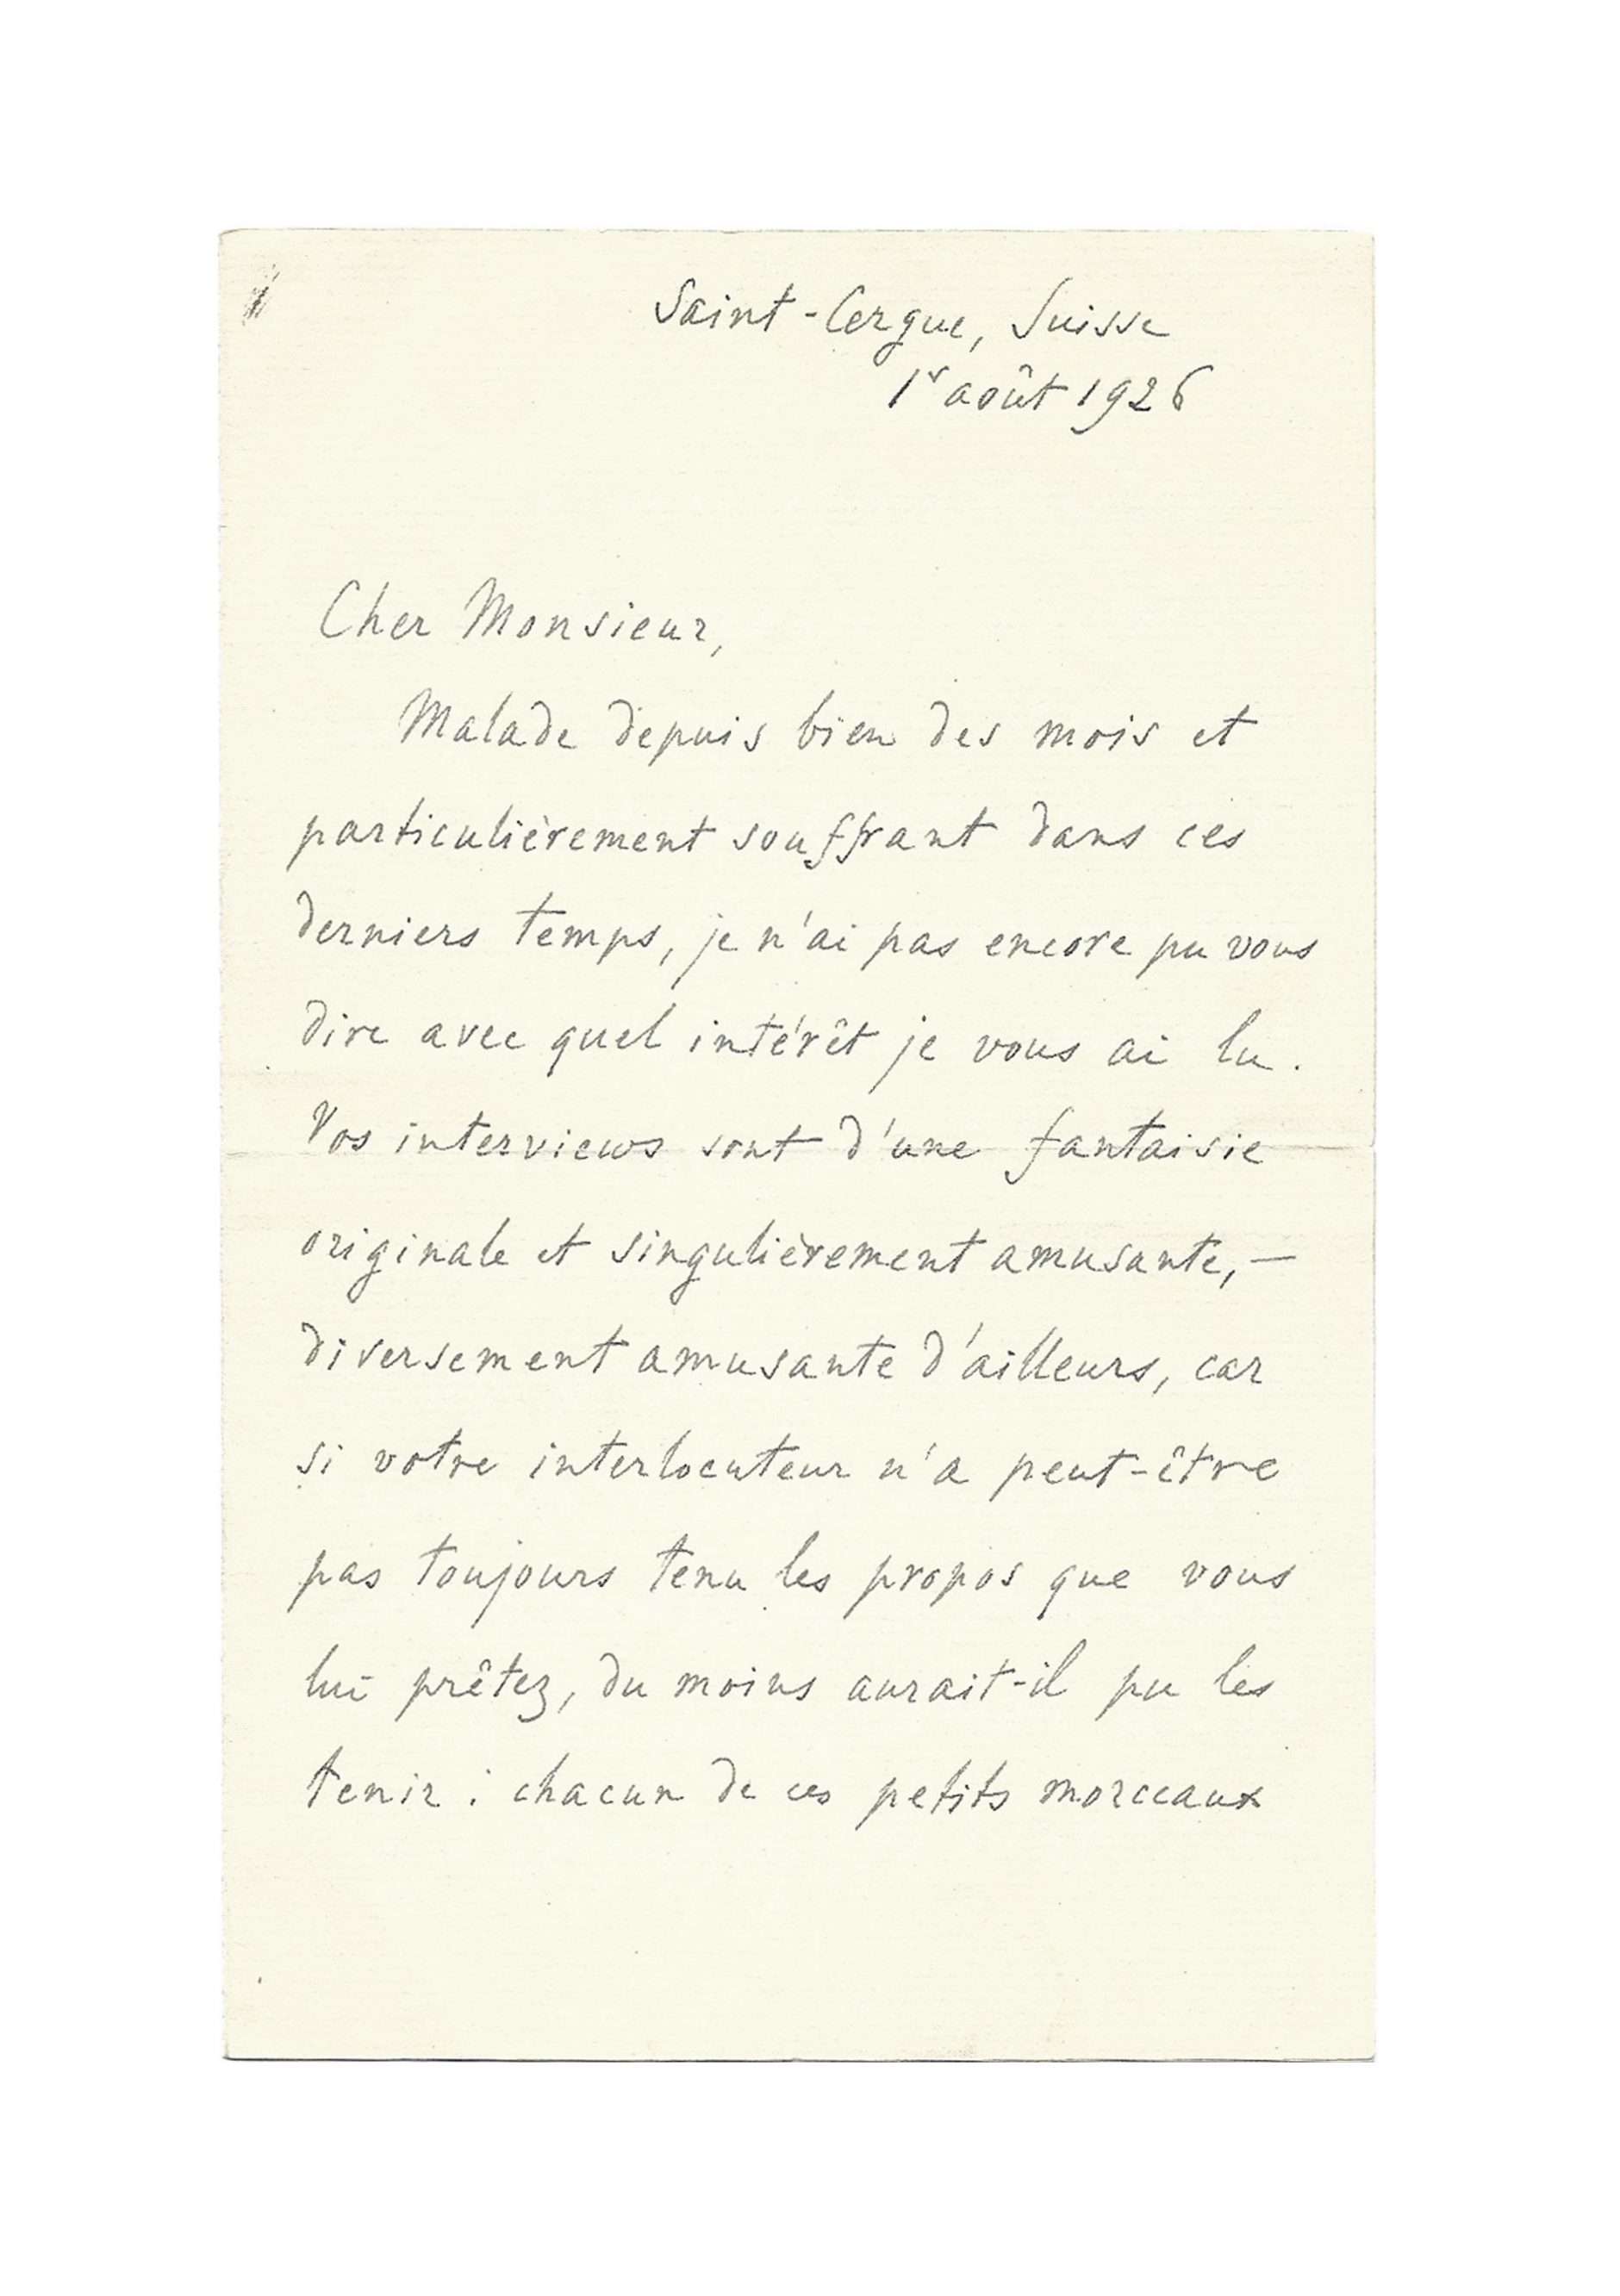 Saint-Cergue, Suisse
1r août 1926
Cher Monsieur,
Malade depuis bien des mois et
particulièrement souffrant dans ces
derniers temps, je n'ai pas encore pu vous
dire avec quel intérêt je vous ai lu.
Vos interviews sont d'une fantaisie
originale et singulièrement amusante, —
diversement amusante d'ailleurs, car
si votre interlocuteur n'a peut-être
pas toujours tenu les propos que vous
lui prêtez, du moins aurait-il pu les
tenir : chacun de ces petits morceaux